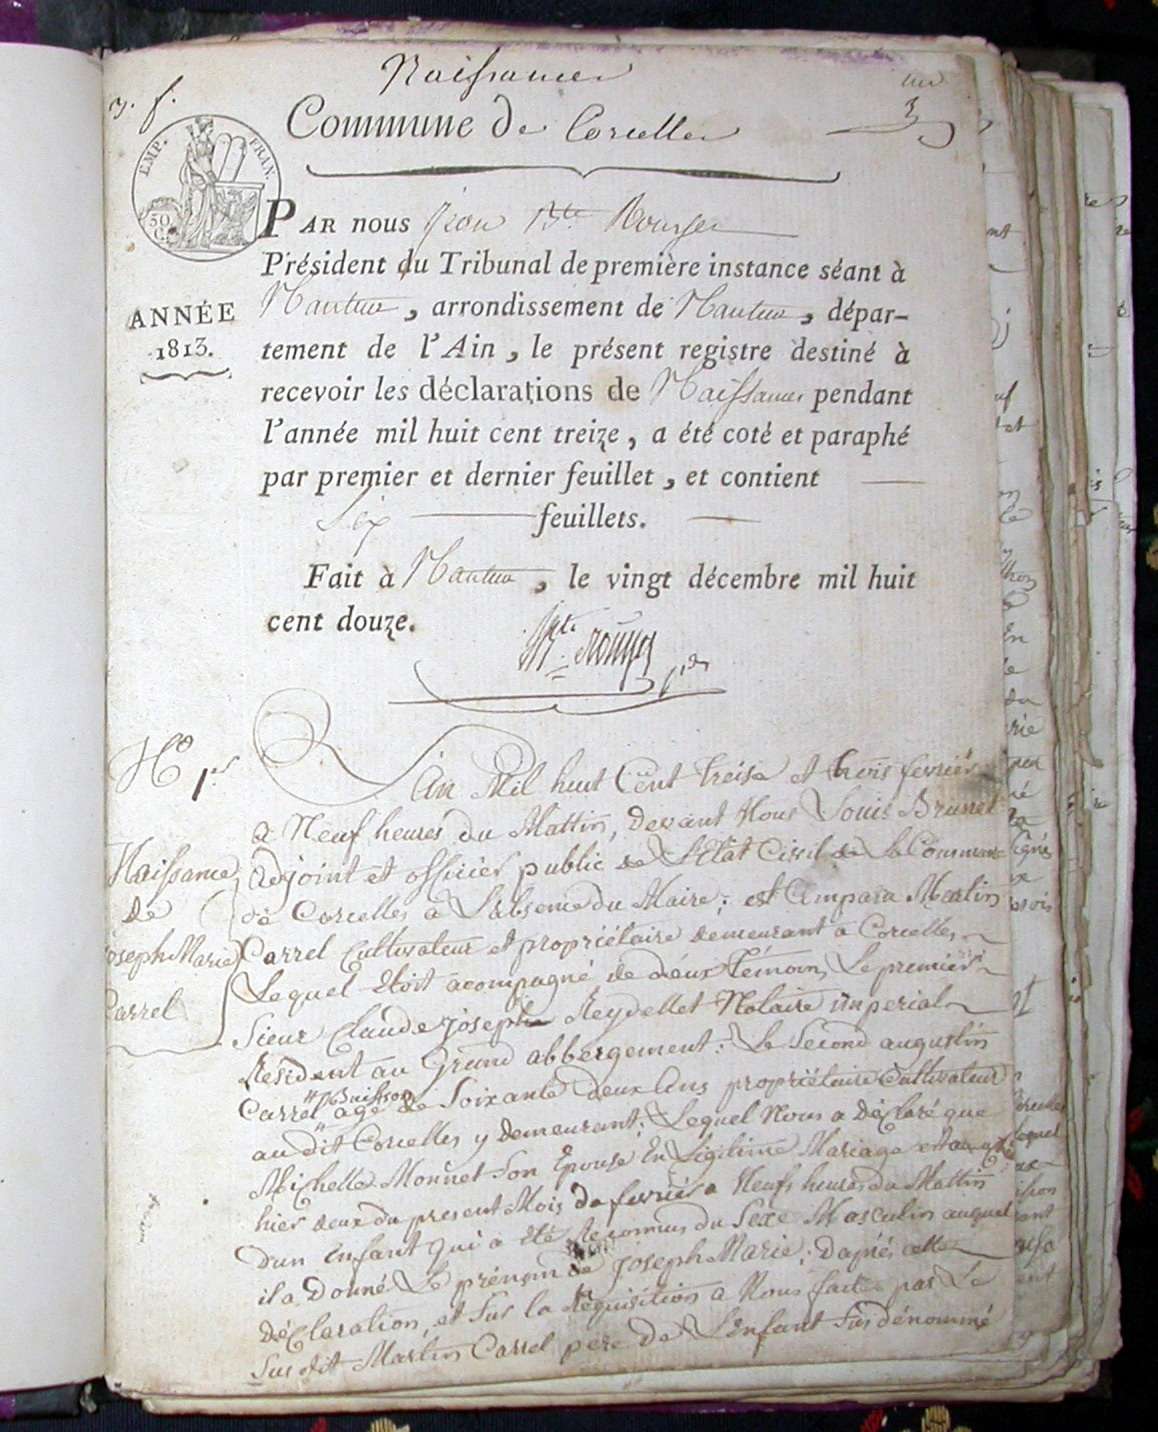 Naissances
Commune de Corcelles
3
EMP. FRAN.
50 C.
PAR nous Jean Bte Rouyer
Président du Tribunal de première instance séant à
Nantua, arrondissement de Nantua, dépar-
tement de l'Ain, le présent registre destiné à
recevoir les déclarations de Naissances pendant
l'année mil huit cent treize, a été coté et paraphé
par premier et dernier feuillet, et contient
Six feuillets.
Fait à Nantua, le vingt décembre mil huit
cent douze.
ANNÉE
1813.
Bte Rouyer pdt
No 1er
Naissance
de
Joseph Marie
Carrel
L'an Mil huit Cent treise et trois fevrier
a Neuf heures du Mattin, devant Nous Louis Brunet
adjoint et officier public de L'Etat Civil de La Commune
de Corcelles a L'absence du Maire; est Comparu Martin
Carrel Cultivateur et propriétaire demeurant a Corcelles
Lequel etoit acompagné de deux témoins, Le premier
Sieur Claude Joseph Reydellet Notaire imperial
Resident au Grand abbergement; Le Second augustin
Carrel "Buisson" agé de Soixante deux Ans propriétaire Cultivateur
au dit Corcelles y demeurant; Lequel Nous a Déclaré que
Michelle Monnet Son Epouse En Legitime Mariage est
hier deux du present Mois de fevrier a Neufs heures du Mattin
D'un Enfant qui a été Reconnus du Sexe Masculin auquel
il a Donné Le prénom de Joseph Marie; D'après cette
Déclaration, et Sur la Requisition a Nous faite par Le
Sus dit Martin Carrel pere de L'Enfant Sus dénommé